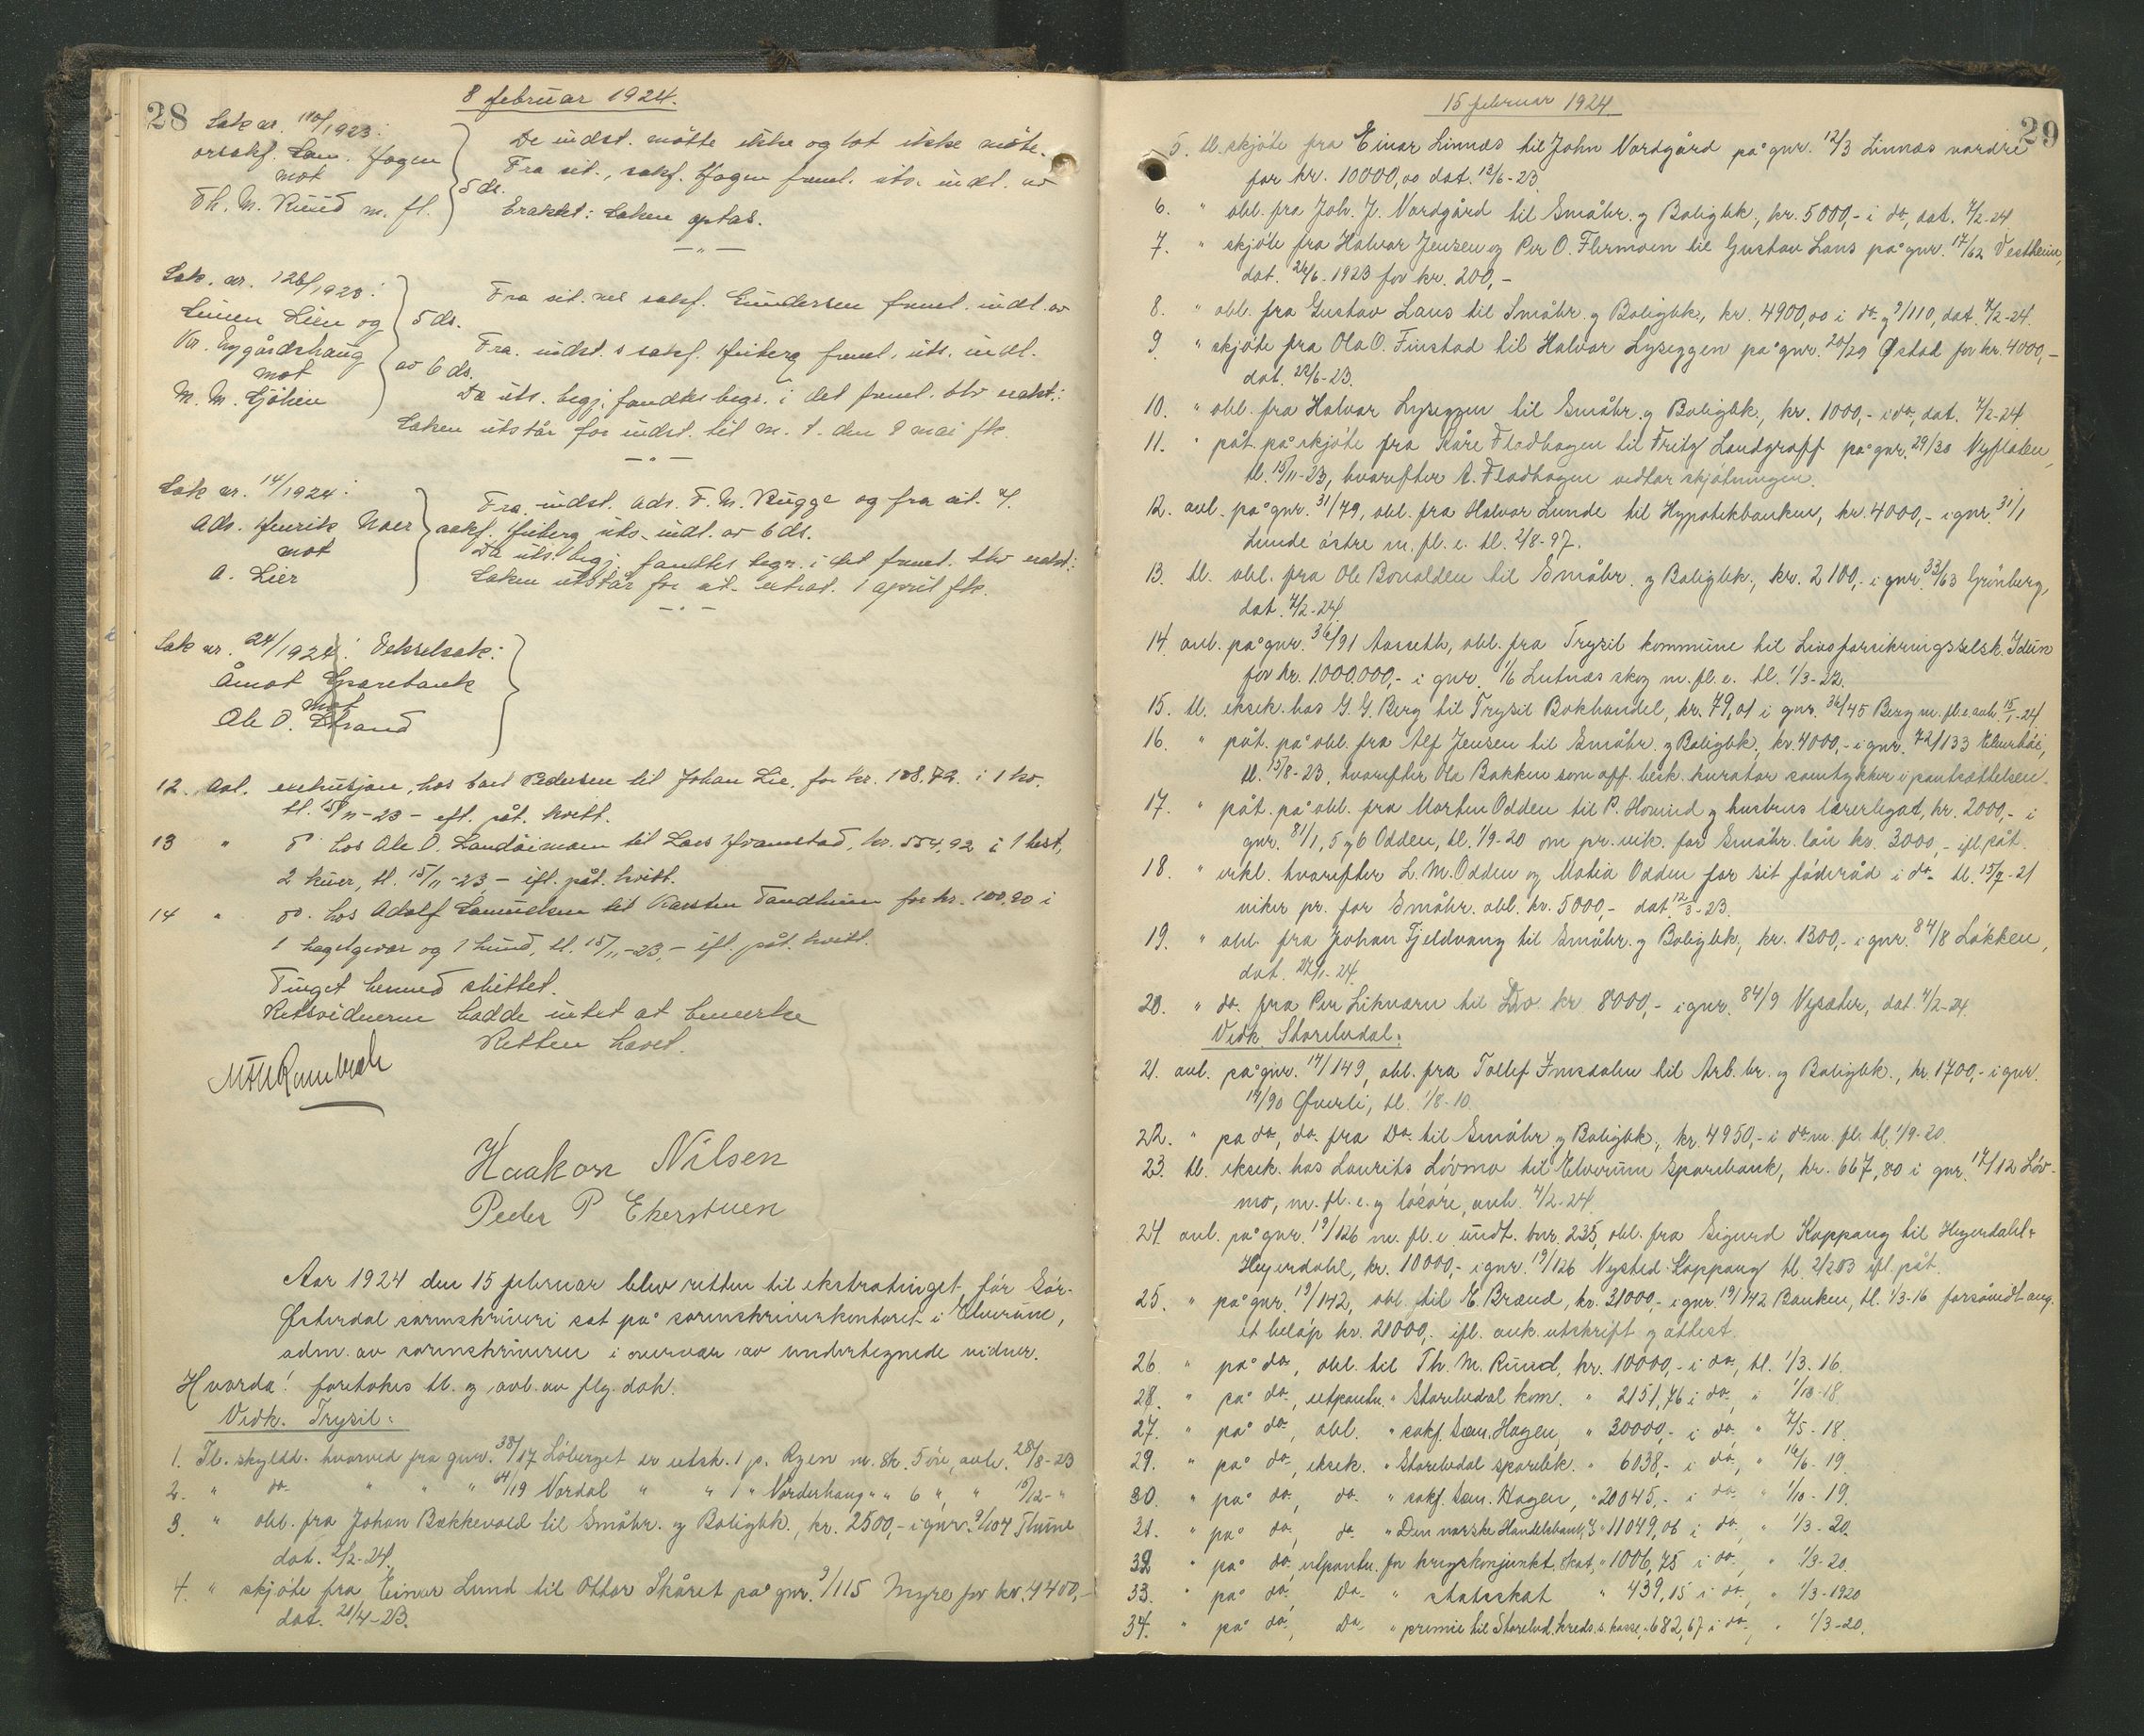 28
8 februar 1924.
Sak nr. 110/1923:
orsakf. Sam. Hagen
mot
Th. M. Ruud m. fl.
De indst. møtte ikke og lot ikke møte.
Fra sit., sakf. Hagen freml. uts. indl. av
5 ds.
Eraktet: Saken optas.
Sak. nr. 128/1923:
Simen Lien og
Kr. Nygårdshaug
mot
M. M. Sjölien
Fra sit. ved sakf. Gundersen freml. indl. av
5 ds.
Fra indst. s sakf. Friberg freml. uts. indl.
av 6 ds.
Da uts. begj. fandtes begr. i det freml. blev erakt:
Saken utstår for indst. til m. t. den 9 mai fk.
Sak nr. 14/1924:
Adv. Henrik Naer
mot
A. Lier
Fra indst. adv. F. M. Bugge og fra sit. v/
sakf. Friberg uts. indl. av 6 ds.
Da uts. begj. fandtes begr. i det freml. blev erakt:
Saken utstår for sit. extrat. 1 april fk.
Sak nr. 24/1924: Vekselsak:
Åmot Sparebank
mot
Ole O. Strand
12. Avl. exekusjon, hos Carl Pedersen til Johan Lie, for kr. 108.72. i 1 ko.
tl. 15/11-23 - eft. påt. kvitt.
13 " do hos Ole O. Landåimoen til Lars Framstad, kr. 554,92 i 1 hest,
2 kuer, tl. 15/11-23 - ifl. påt. kvitt.
14 " do. hos Adolf Samuelsen til Karsten Tandheim for kr. 100.20 i
1 haglgevær og 1 hund, tl. 15/11-23, - ifl. påt. kvitt.
Tinget hermed sluttet.
Retsvidnerne hadde intet at bemerke
Retten hævet.
Haakon Nilsen
Peder P Ekerstuen
Aar 1924 den 15 februar blev retten til ekstratinget for Sör-
Österdal sorenskriveri sat på sorenskriverkontoret i Elverum,
adm. av sorenskriveren i overvær av undertegnede vidner.
Hvorda! foretokes tl. og avl. av flg. dok.
Vedk. Trysil:
1. Tl. skyldd. hvorved fra gnr. 38/17 Löberget er utsk. 1 p. Ryen m. sk. 5 øre, avh. 28/8-23
2. " do " " " 64/19 Nordal " " 1 " Nordenhaug " " 6 ", " 15/12- "
3 " obl. fra Johan Bakkevold til Småbr. og Boligbk., kr. 2500,- i gnr. 9/104 Thune
dat. 2/2-24.
4. " skjöte fra Einar Lund til Ottar Skåret på gnr. 9/115 Myre for kr. 4400,-
dat. 21/4-23.
29
15 februar 1924.
5. tl. skjöte fra Einar Linnæs til John Nordgård på gnr. 12/3 Linnæs nordre
for kr. 10000,00 dat. 12/6-23.
6. " obl. fra Joh. J. Nordgård til Småbr. og Boligbk., kr. 5000,- i do, dat. 7/2-24
7. " skjöte fra Halvor Jensen og Per O. Flermoen til Gustav Laus på gnr. 17/62 Vestheim,
dat. 26/6-1923 for kr. 200,-
8. " obl. fra Gustav Laus til Småbr. og Boligbk., kr. 4900,00 i do og 9/110, dat. 7/2-24.
9. " skjöte fra Ola O. Finstad til Halvor Lyseggen på gnr. 20/29 Østad for kr. 4000,-
dat. 28/6-23.
10. " obl. fra Halvor Lyseggen til Småbr. og Boligbk., kr. 1000,- i do, dat. 7/2-24
11. " påt. på skjöte fra Kåre Flodhagen til Fritz Landgraff på gnr. 29/30 Nyfloden,
tl. 15/11-23, hvorefter A. Flodhagen vedtar skjötningen.
12. avl. på gnr. 31/79, obl. fra Halvor Lunde til Hypotekbanken, kr. 4000,- i gnr. 31/1
Lunde östre m. fl. e. tl. 2/8-97.
13. tl. obl. fra Ole Bonolden til Småbr. og Boligbk., kr. 2100,- i gnr. 33/63 Grönberg,
dat. 7/2-24.
14 avl. på gnr. 36/91 Aaseth, obl. fra Trysil kommune til Livsforsikringsselsk. Idun
for kr. 1.000.000,- i gnr. 1/6 Lutnæs skog m. fl. e. tl. 1/3-22.
15. tl. eksek. hos G. G. Berg til Trysil Bokhandel, kr. 79,01 i gnr. 36/45 Berg m. fl. e. avh. 15/1-24
16. " påt. på obl. fra Alf Jensen til Småbr. og Boligbk, kr. 4000,- i gnr. 72/133 Elverhöi,
tl. 15/8-23, hvorefter Ola Bakken som opp. besk. kurator samtykker i pantsættelsen.
17. " påt. på obl. fra Morten Odden til P. Hovind og hustrus lærerlegat, kr. 2000,- i
gnr. 81/1, 5 og 6 Odden, tl. 1/9-20 om pr. vik. for Småbr. lån kr. 3000,- ifl. påt.
18. " erkl. hvorefter L. M. Odden og Matea Odden for sit föderåd i do tl. 15/7-21
viker pr. for Småbr. obl. kr. 5000,- dat. 12/3-23.
19. " obl. fra Johan Fjeldvang til Småbr. og Boligbk, kr. 1300,- i gnr. 84/8 Lökken,
dat. 22/1-24.
20. " do. fra Per Likværn til do kr 8000,- i gnr. 84/9 Nysæter, dat. 7/2-24.
Vedk. Storelvdal:
21. avl. på gnr. 14/149, obl. fra Tollef Imsdalen til Arb. br. og Boligbk., kr. 1700,- i gnr.
14/90 Øverli, tl. 1/8-10.
22. " på do, do. fra Do. til Småbr. og Boligbk, kr. 4950,- i do m. fl. tl. 1/9-20.
23. tl. eksek. hos Laurits Lövmo til Elverum Sparebank, kr. 667,80 i gnr. 17/12 Löv-
mo, m. fl. e. og lösöre, avh. 4/2-24.
24. avl. på gnr. 19/126 m. fl. e. undt. bnr. 235, obl. fra Sigurd Koppang til Heyerdahl &
Heyerdahl, kr. 10000,- i gnr. 19/126 Nysted Koppang tl. 2/203 ifl. påt.
25. " på gnr. 19/142, obl. til E. Brænd, kr. 31000,- i gnr. 19/142 Banken, tl. 1/3-16 forsåvidt ang.
et belöp kr. 21000,- ifl. auk. utskrift og attest.
26 " på do, obl. til Th. M. Ruud, kr. 10000,- i do, tl. 1/3.16.
28. " på do, utpantn. " Storelvdal kom. " 2151,76 i do, " 1/10-18
27. " på do, obl. " sakf. Sam. Hagen, " 30000,- i do " 7/5-18.
29. " på do, eksek. " Storelvdal sparebk. " 6038,- i do, " 16/6-19.
30. " på do, do. " sakf. Sam. Hagen, " 20045,- i do " 1/10-19.
31. " på do, do. " Den norske Handelsbank, " 11049,06 i do, " 1/3-20.
32 " på do, utpantn. for krigskonjunkt. skat, " 1006,75 i do, " 1/3-20
33. " på do, Do. " statsskat " 439,15 i do. " 1/3-1920
34. " på do, Do. " premie til Storelvd. kreds.s. kasse, " 682,67 i do, " 1/3-20.